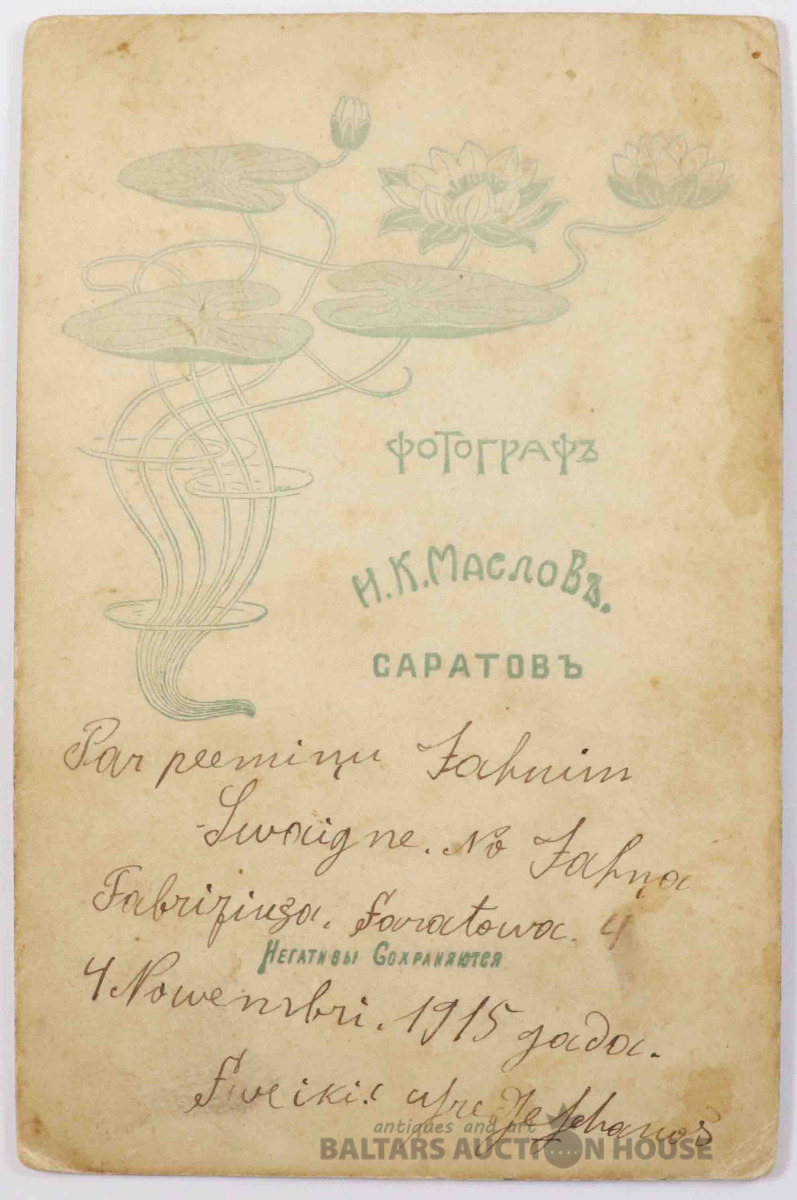 Фотографъ
Н.К.Масловъ.
САРАТОВЪ
Par peemiņu Jahnim
Swaigne. No Jahņa
Saratowa. 4
Негативы Сохраняются
4 Nowembri. 1915 gada.
Sweiki!
antiques and art
BALTARS AUCTION HOUSE